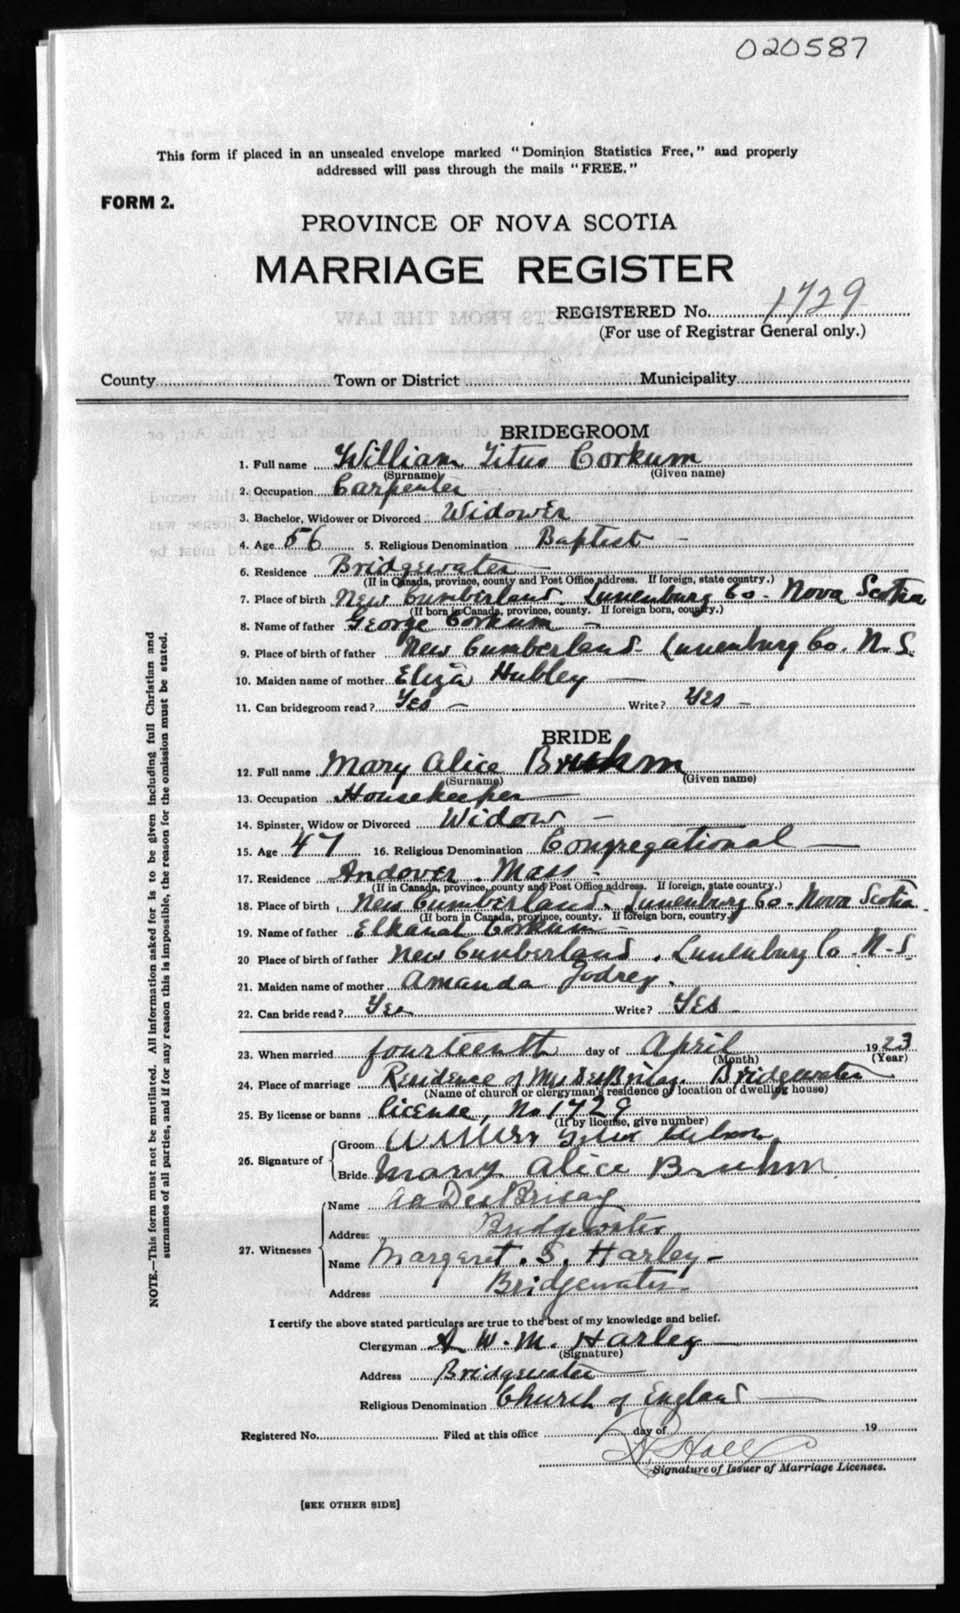 020587
This form if placed in an unsealed envelope marked "Dominion Statistics Free," and properly
addressed will pass through the mails "FREE."
FORM 2.
PROVINCE OF NOVA SCOTIA
MARRIAGE REGISTER
REGISTERED No. 1729
(For use of Registrar General only.)
County Town or District Municipality
BRIDEGROOM
1. Full name William Titus Corkum
(Surname) (Given name)
2. Occupation Carpenter
3. Bachelor, Widower or Divorced Widower
4. Age 56 5. Religious Denomination Baptist
6. Residence Bridgewater
(If in Canada, province, county and Post Office address. If foreign, state country.)
7. Place of birth New Cumberland. Lunenburg Co. Nova Scotia
(If born in Canada, province, county. If foreign born, country.)
8. Name of father George Corkum
9. Place of birth of father New Cumberland Lunenburg Co. N.S.
10. Maiden name of mother Eliza Hubley
11. Can bridegroom read? Yes Write? Yes
BRIDE
12. Full name Mary Alice Bruhm
(Surname) (Given name)
13. Occupation Housekeeper
14. Spinster, Widow or Divorced Widow
15. Age 47 16. Religious Denomination Congregational
17. Residence Andover. Mass.
(If in Canada, province, county and Post Office address. If foreign, state country.)
18. Place of birth New Cumberland. Lunenburg Co. Nova Scotia
(If born in Canada, province, county. If foreign born, country.)
19. Name of father Elkanah Corkum
20 Place of birth of father New Cumberland. Lunenburg Co N.S
21. Maiden name of mother Amanda Godrey.
22. Can bride read? Yes Write? Yes
23. When married fourteenth day of April 1923
(Month) (Year)
24. Place of marriage Residence of DesBrisay. Bridgewater
(Name of church or clergyman's residence or location of dwelling house)
25. By license or banns license, No 1729
(If by license, give number)
26. Signature of
Groom
Bride Mary Alice Bruhm
27. Witnesses
Name DesBrisay
Address Bridgewater
Name Margaret. S. Harley
Address Bridgewater
I certify the above stated particulars are true to the best of my knowledge and belief.
Clergyman A W. M. Harley
(Signature)
Address Bridgewater
Religious Denomination Church of England
Registered No. Filed at this office day of 19
Hall
Signature of Issuer of Marriage Licenses.
[SEE OTHER SIDE]
NOTE.—This form must not be mutilated. All information asked for is to be given including full Christian and
surnames of all parties, and if for any reason this is impossible, the reason for the omission must be stated.